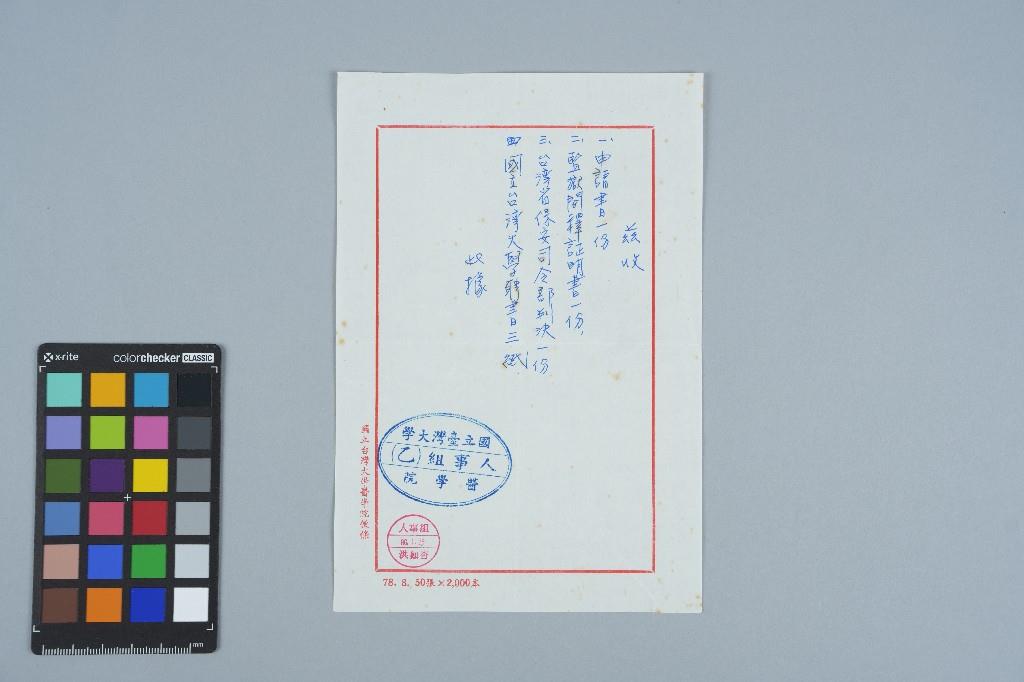 茲收
一、申請書一份
二、監獄開釋証明書一份、
三、台湾省保安司令部判決一份
四國立台湾大學聘書三紙
此據
國立臺灣大學
人事組(乙)
醫學院
組事人
國立台灣大學醫學院便條
78. 8. 50張×2,000本
x-rite
colorchecker CLASSIC
mm